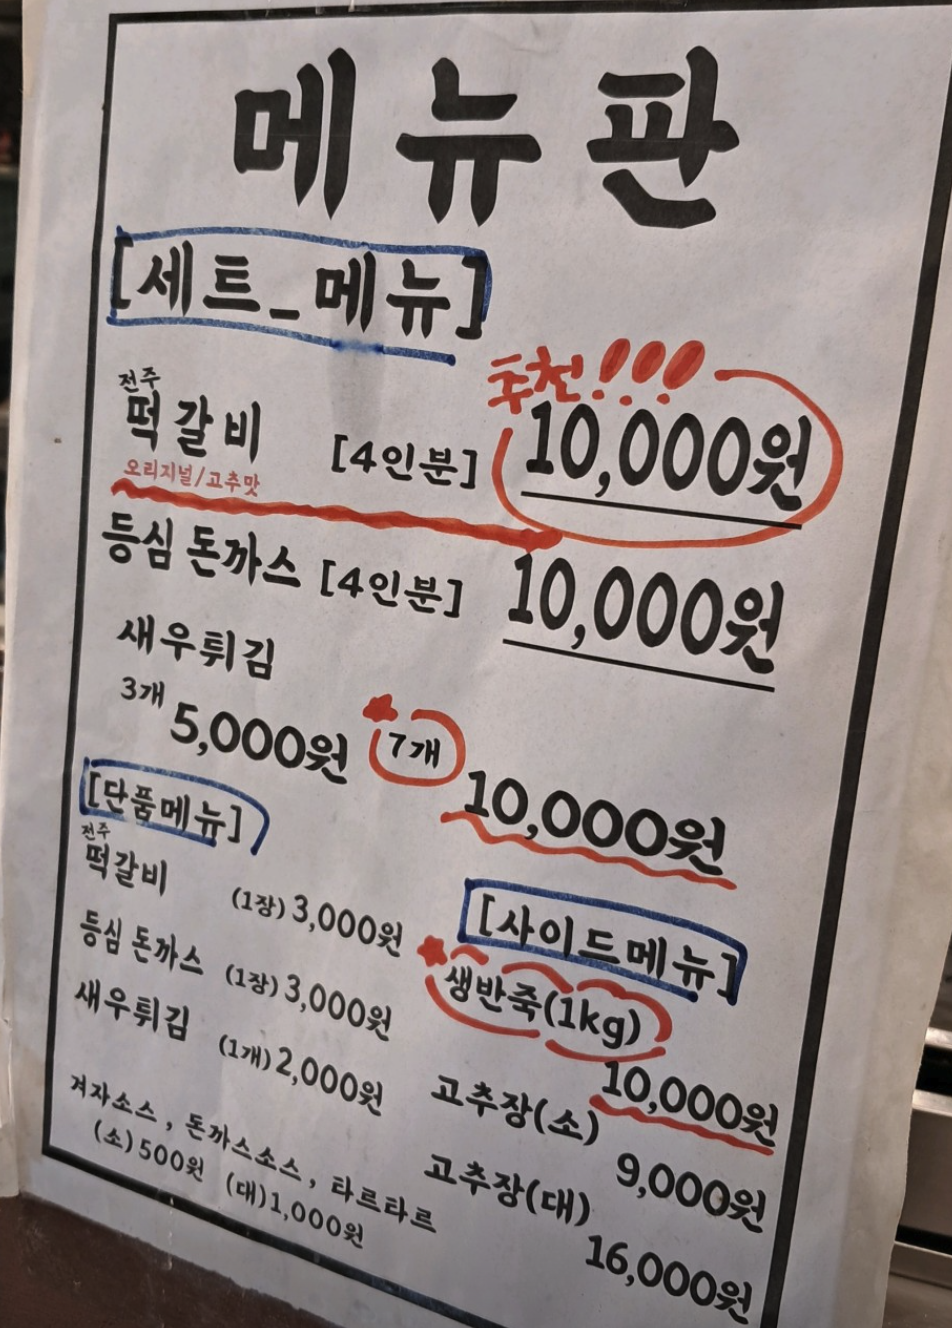 메뉴판
[세트_메뉴]
추천!!!!
전주
떡갈비 [4인분] 10,000원
오리지널/고추맛
등심 돈까스 [4인분] 10,000원
새우튀김
3개 5,000원 7개 10,000원
[단품메뉴]
전주
떡갈비 (1장) 3,000원
등심 돈까스 (1장) 3,000원
새우튀김 (1개) 2,000원
겨자소스, 돈까스소스, 타르타르
(소) 500원 (대) 1,000원
[사이드메뉴]
생반죽(1kg)
10,000원
고추장(소)
9,000원
고추장(대)
16,000원